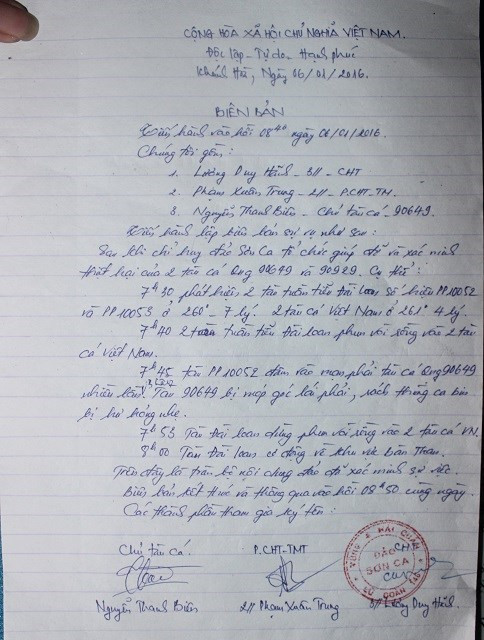 CỘNG HÒA XÃ HỘI CHỦ NGHĨA VIỆT NAM.
Độc lập - Tự do - Hạnh phúc
Khánh Hòa, Ngày 06/01/2016.
BIÊN BẢN
Tiến hành vào hồi 08h40 ngày 06/01/2016.
Chúng tôi gồm:
1. Lương Duy Hãnh - 3// - CHT
2. Phạm Xuân Trung - 2// - P.CHT-TM.
3. Nguyễn Thanh Biên - Chủ tàu cá - 90649.
Tiến hành lập biên bản sự vụ như sau:
Sau khi chỉ huy đảo Sơn Ca tổ chức giúp đỡ và xác minh
thiệt hại của 2 tàu cá Qng 90649 và 90929. Cụ thể:
7h30, phát hiện 2 tàu tuần tiễu Đài loan số hiệu PP10052
và PP10053 ở 260° - 7 lý. 2 tàu cá Việt Nam ở 261° 4 lý.
7h40 2 tàu tuần tiễu Đài loan phun vòi rồng vào 2 tàu
cá Việt Nam.
7h45 tàu PP10052 đâm vào mạn phải tàu cá Qng 90649
nhiều lần. Tàu 90649 bị móp góc lái phải, rách thùng ca bin
bị hư hỏng nhẹ.
7h53 Tàu Đài loan dừng phun vòi rồng vào 2 tàu cá VN.
8h00 Tàu Đài loan cơ động về khu vực Bàn Than.
Trên đây là toàn bộ nội dung đảo đã xác minh sự việc.
Biên bản kết thúc và thông qua vào hồi 08h50 cùng ngày.
Các thành phần tham gia ký tên:
Chủ tàu cá. P.CHT-TMT CHT
VÙNG 4 HẢI QUÂN
ĐẢO
SƠN CA
LỮ ĐOÀN 146
Nguyễn Thanh Biên 2// Phạm Xuân Trung 3// Lương Duy Hãnh